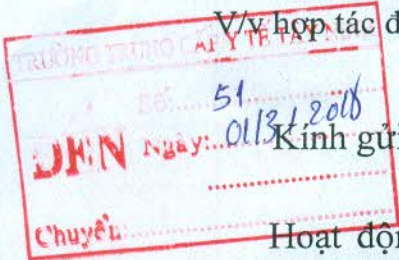 V/v hợp tác đ
TRƯỜNG TRUNG CẤP Y TẾ TÂY
Số: 51
ĐẾN Ngày: 01/3/2018
Kính gửi
Chuyển:
Hoạt độn